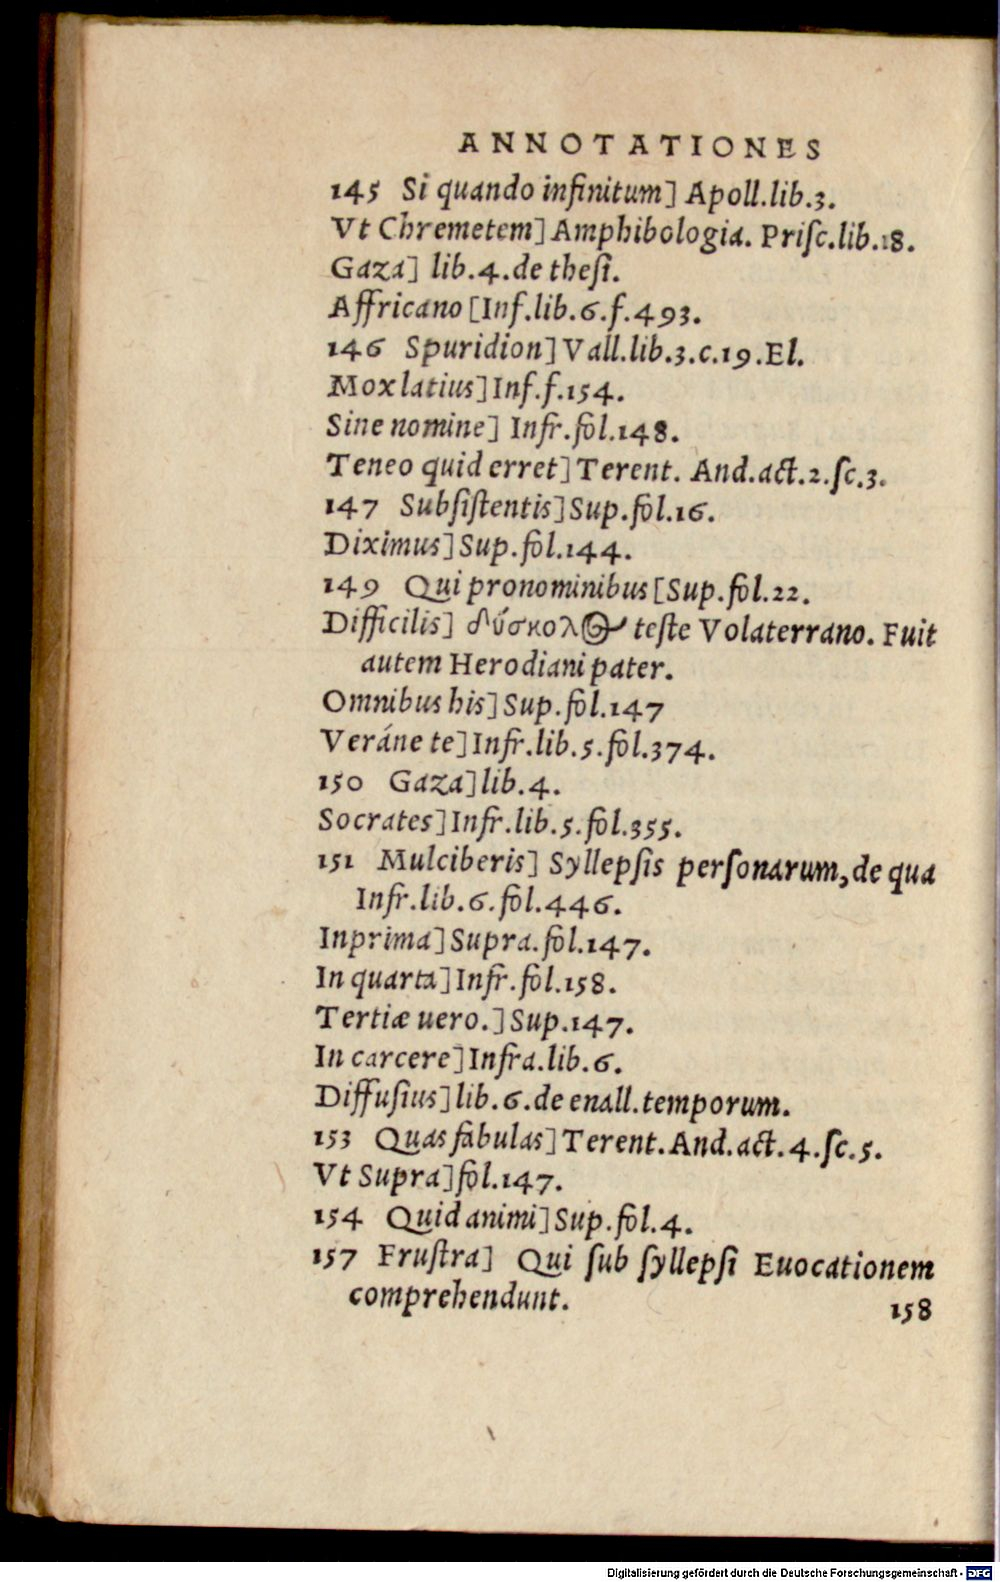 ANNOTATIONES
145 Si quando infinitum] Apoll.lib.3.
Vt Chremetem] Amphibologia. Priſc.lib.18.
Gaza] lib.4.de theſi.
Affricano [Inf.lib.6.f.493.
146 Spuridion] Vall.lib.3.c.19.El.
Mox latius] Inf.f.154.
Sine nomine] Infr.fol.148.
Teneo quid erret] Terent. And.act.2.ſc.3.
147 Subſiſtentis] Sup.fol.16.
Diximus] Sup.fol.144.
149 Qui pronominibus [Sup.fol.22.
Difficilis] δύσκολος teſte Volaterrano. Fuit
autem Herodiani pater.
Omnibus his] Sup.fol.147
Veráne te] Infr.lib.5.fol.374.
150 Gaza] lib.4.
Socrates] Infr.lib.5.fol.355.
151 Mulciberis] Syllepſis perſonarum, de qua
Infr.lib.6.fol.446.
Inprima] Supra.fol.147.
In quarta] Infr.fol.158.
Tertiæ uero.] Sup.147.
In carcere] Infra.lib.6.
Diffuſius] lib.6.de enall.temporum.
153 Quas fabulas] Terent.And.act.4.ſc.5.
Vt Supra] fol.147.
154 Quid animi] Sup.fol.4.
157 Fruſtra] Qui ſub ſyllepſi Euocationem
comprehendunt.
158
Digitalisierung gefördert durch die Deutsche Forschungsgemeinschaft - DFG